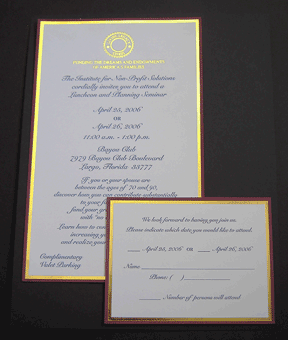 The Institute for Non-Profit Solutions
cordially invites you to attend a
Luncheon and Planning Seminar
April 25, 2006
OR
April 26, 2006
11:00 a.m. - 1:00 p.m.
Bayou Club
7979 Bayou Club Boulevard
Largo, Florida 33777
If you or your spouse are
between the ages of 70 and 90,
discover how you can contribute substantially
to your
fund your
with "no
Learn how to
increasing your
and realize
Complimentary
Valet Parking
We look forward to having you join us.
Please indicate which date you would like to attend.
April 25, 2006 or April 26, 2006
Name
Phone: ( )
Number of persons will attend